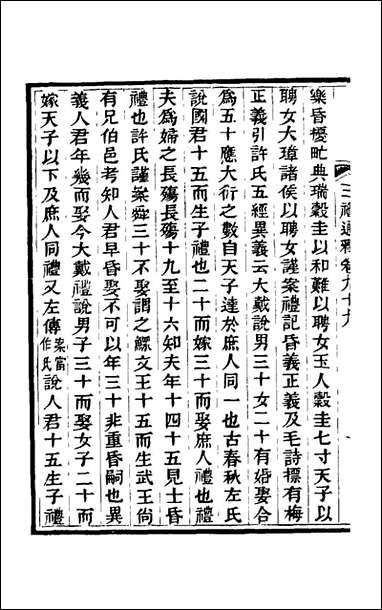 三禮通釋卷九十九
樂昏櫌甿典瑞穀圭以和難以聘女玉人穀圭七寸天子以
聘女大璋諸侯以聘女謹案禮記昏義正義及毛詩摽有梅
正義引許氏五經異義云大戴說男三十女二十有婚娶合
爲五十應大衍之數自天子達於庶人同一也古春秋左氏
說國君十五而生子禮也二十而嫁三十而娶庶人禮也禮
夫爲婦之長殤長殤十九至十六知夫年十四十五見士昏
禮也許氏謹案舜三十不娶謂之鰥文王十五而生武王尙
有兄伯邑考知人君早昏娶不可以年三十非重昏嗣也異
義人君年幾而娶今大戴禮說男子三十而娶女子二十而
嫁天子以下及庶人同禮又左傳案當作氏說人君十五生子禮